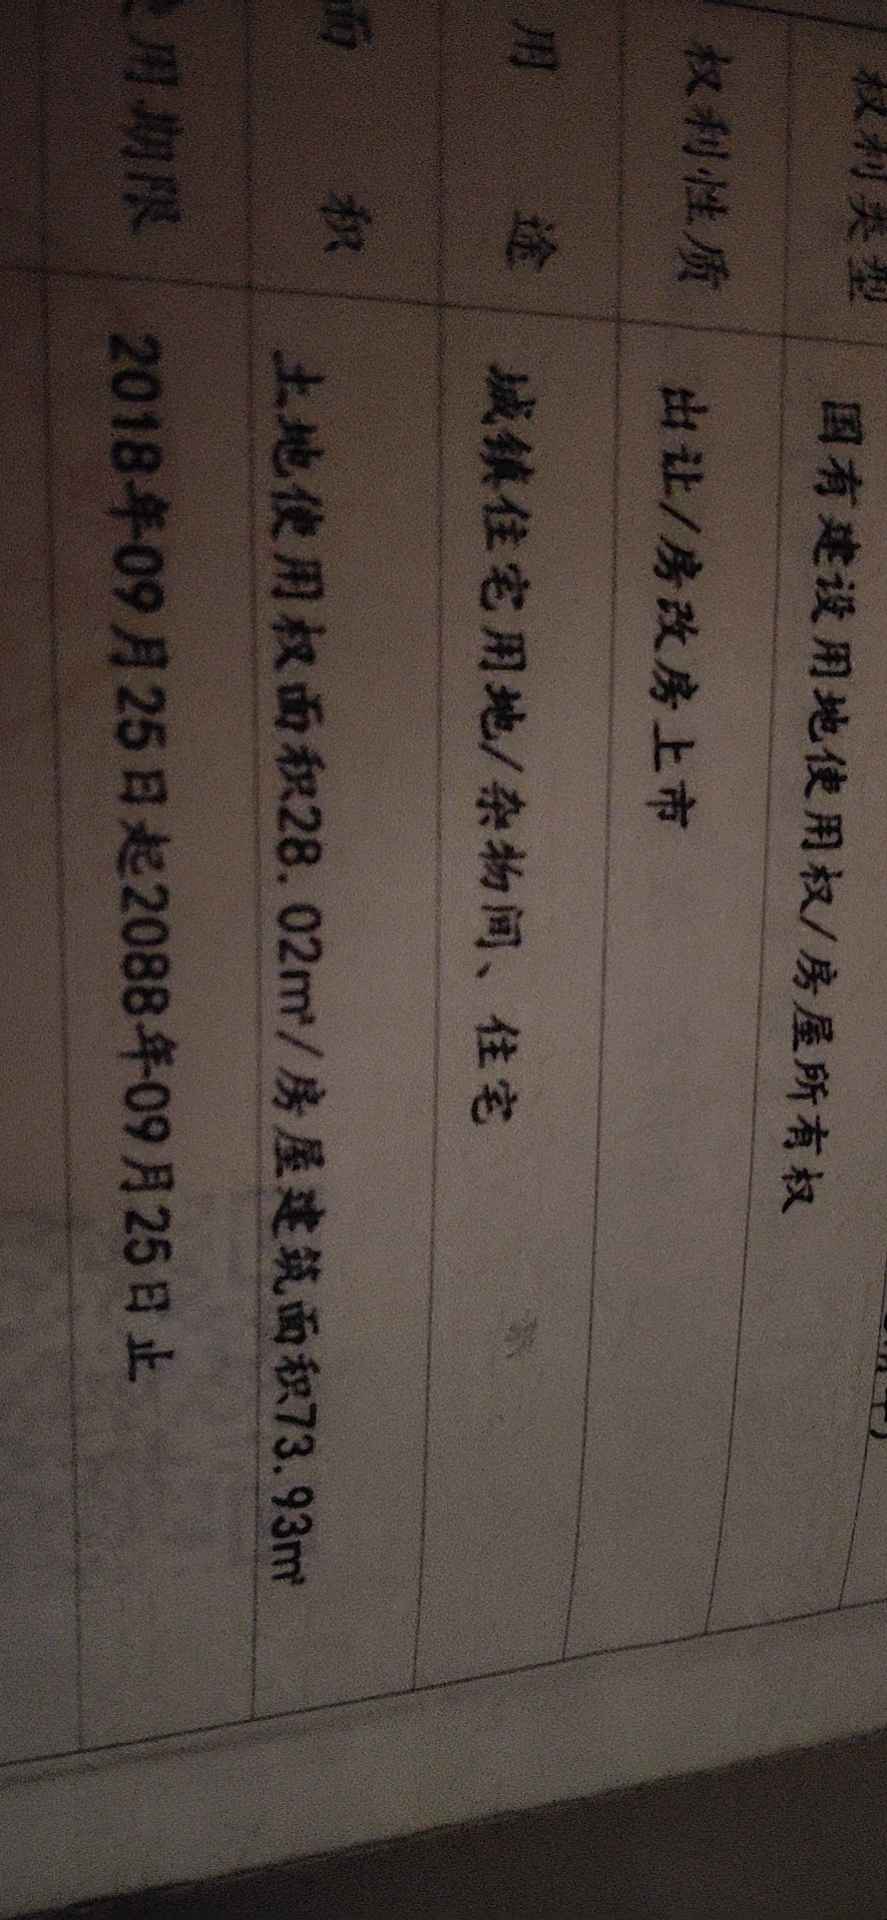 权利类型 国有建设用地使用权/房屋所有权
权利性质 出让/房改房上市
用途 城镇住宅用地/杂物间、住宅
面积 土地使用权面积28.02㎡/房屋建筑面积73.93㎡
使用期限 2018年09月25日起2088年09月25日止